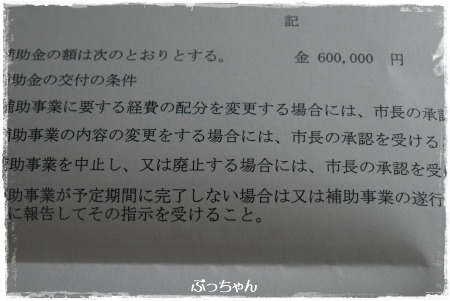 記
補助金の額は次のとおりとする。 金 600,000 円
補助金の交付の条件
補助事業に要する経費の配分を変更する場合には、市長の承認
補助事業の内容の変更をする場合には、市長の承認を受ける
補助事業を中止し、又は廃止する場合には、市長の承認を受け
助事業が予定期間に完了しない場合は又は補助事業の遂行
に報告してその指示を受けること。
ぷっちゃん